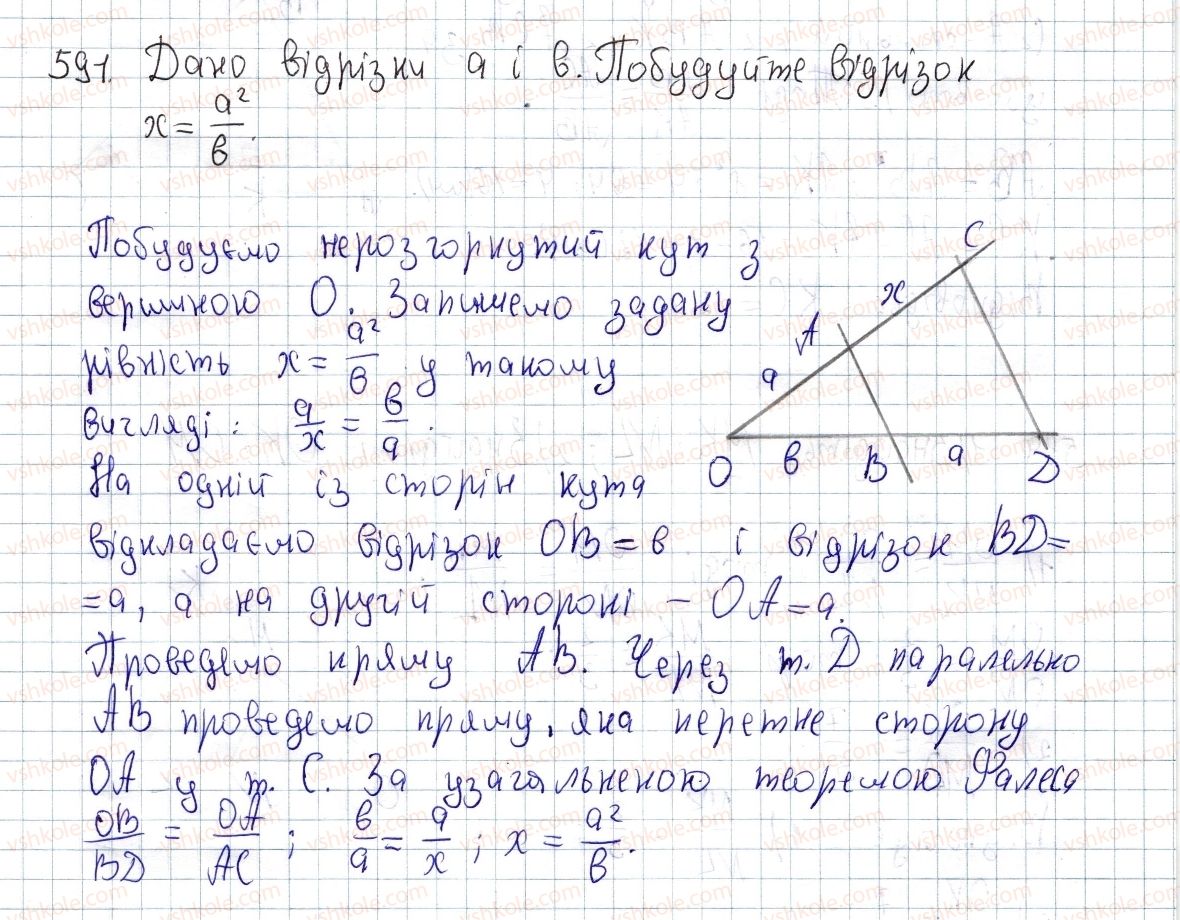 591 Дано відрізки a і в. Побудуйте відрізок
x = a²/в.
Побудуємо нерозгорнутий кут з
вершиною O. Запишемо задану
рівність x = a²/в у такому
вигляді: a/x = в/a.
На одній із сторін кута
відкладаємо відрізок OB = в і відрізок BD =
= a, а на другій стороні – OA = a.
Проведемо пряму AB. Через т. D паралельно
AB проведемо пряму, яка перетне сторону
OA у т. C. За узагальненою теоремою Фалеса
OB/BD = OA/AC; в/a = a/x; x = a²/в.
C
x
A
a
O в B a D